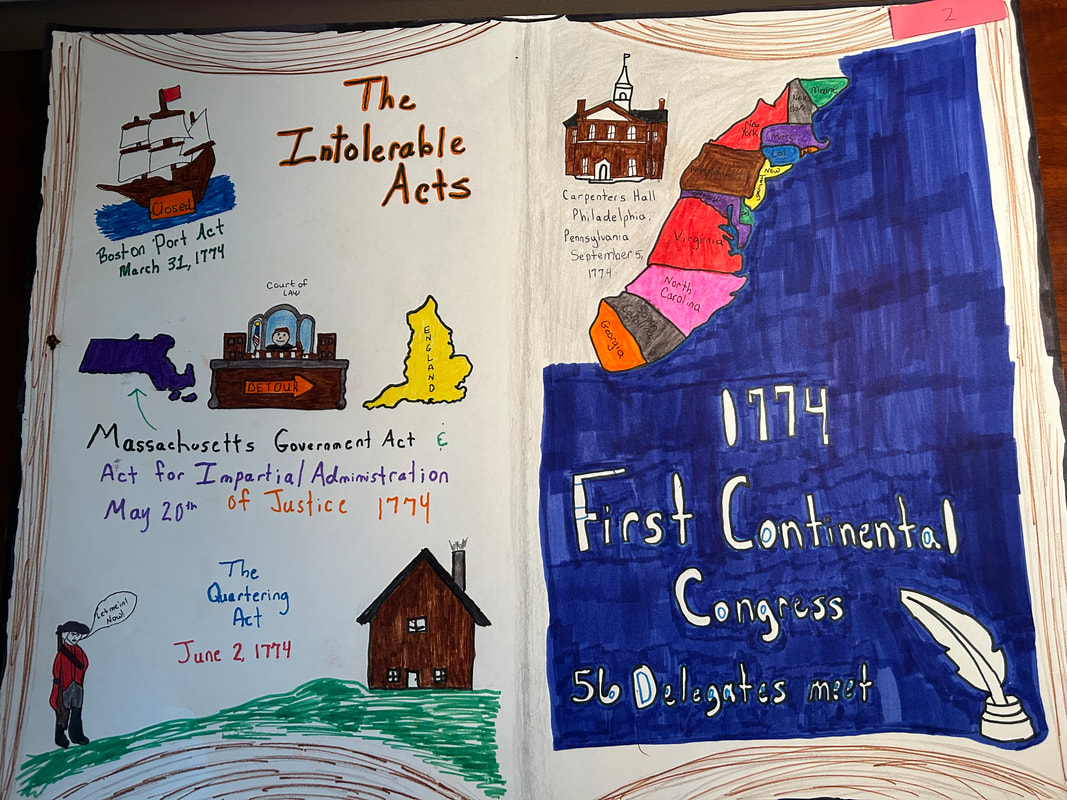 2
The
Intolerable
Acts
Closed
Boston Port Act
March 31, 1774
Court of
LAW
DETOUR
ENGLAND
Massachusetts Government Act &
Act for Impartial Administration
May 20th of Justice 1774
The
Quartering
Act
June 2, 1774
Let me in!
Now!
Carpenters Hall
Philadelphia,
Pennsylvania
September 5,
1774
Maine
New
New
York
Mass
New
Virginia
North
Carolina
South
Carolina
Georgia
1774
First Continental
Congress
56 Delegates meet